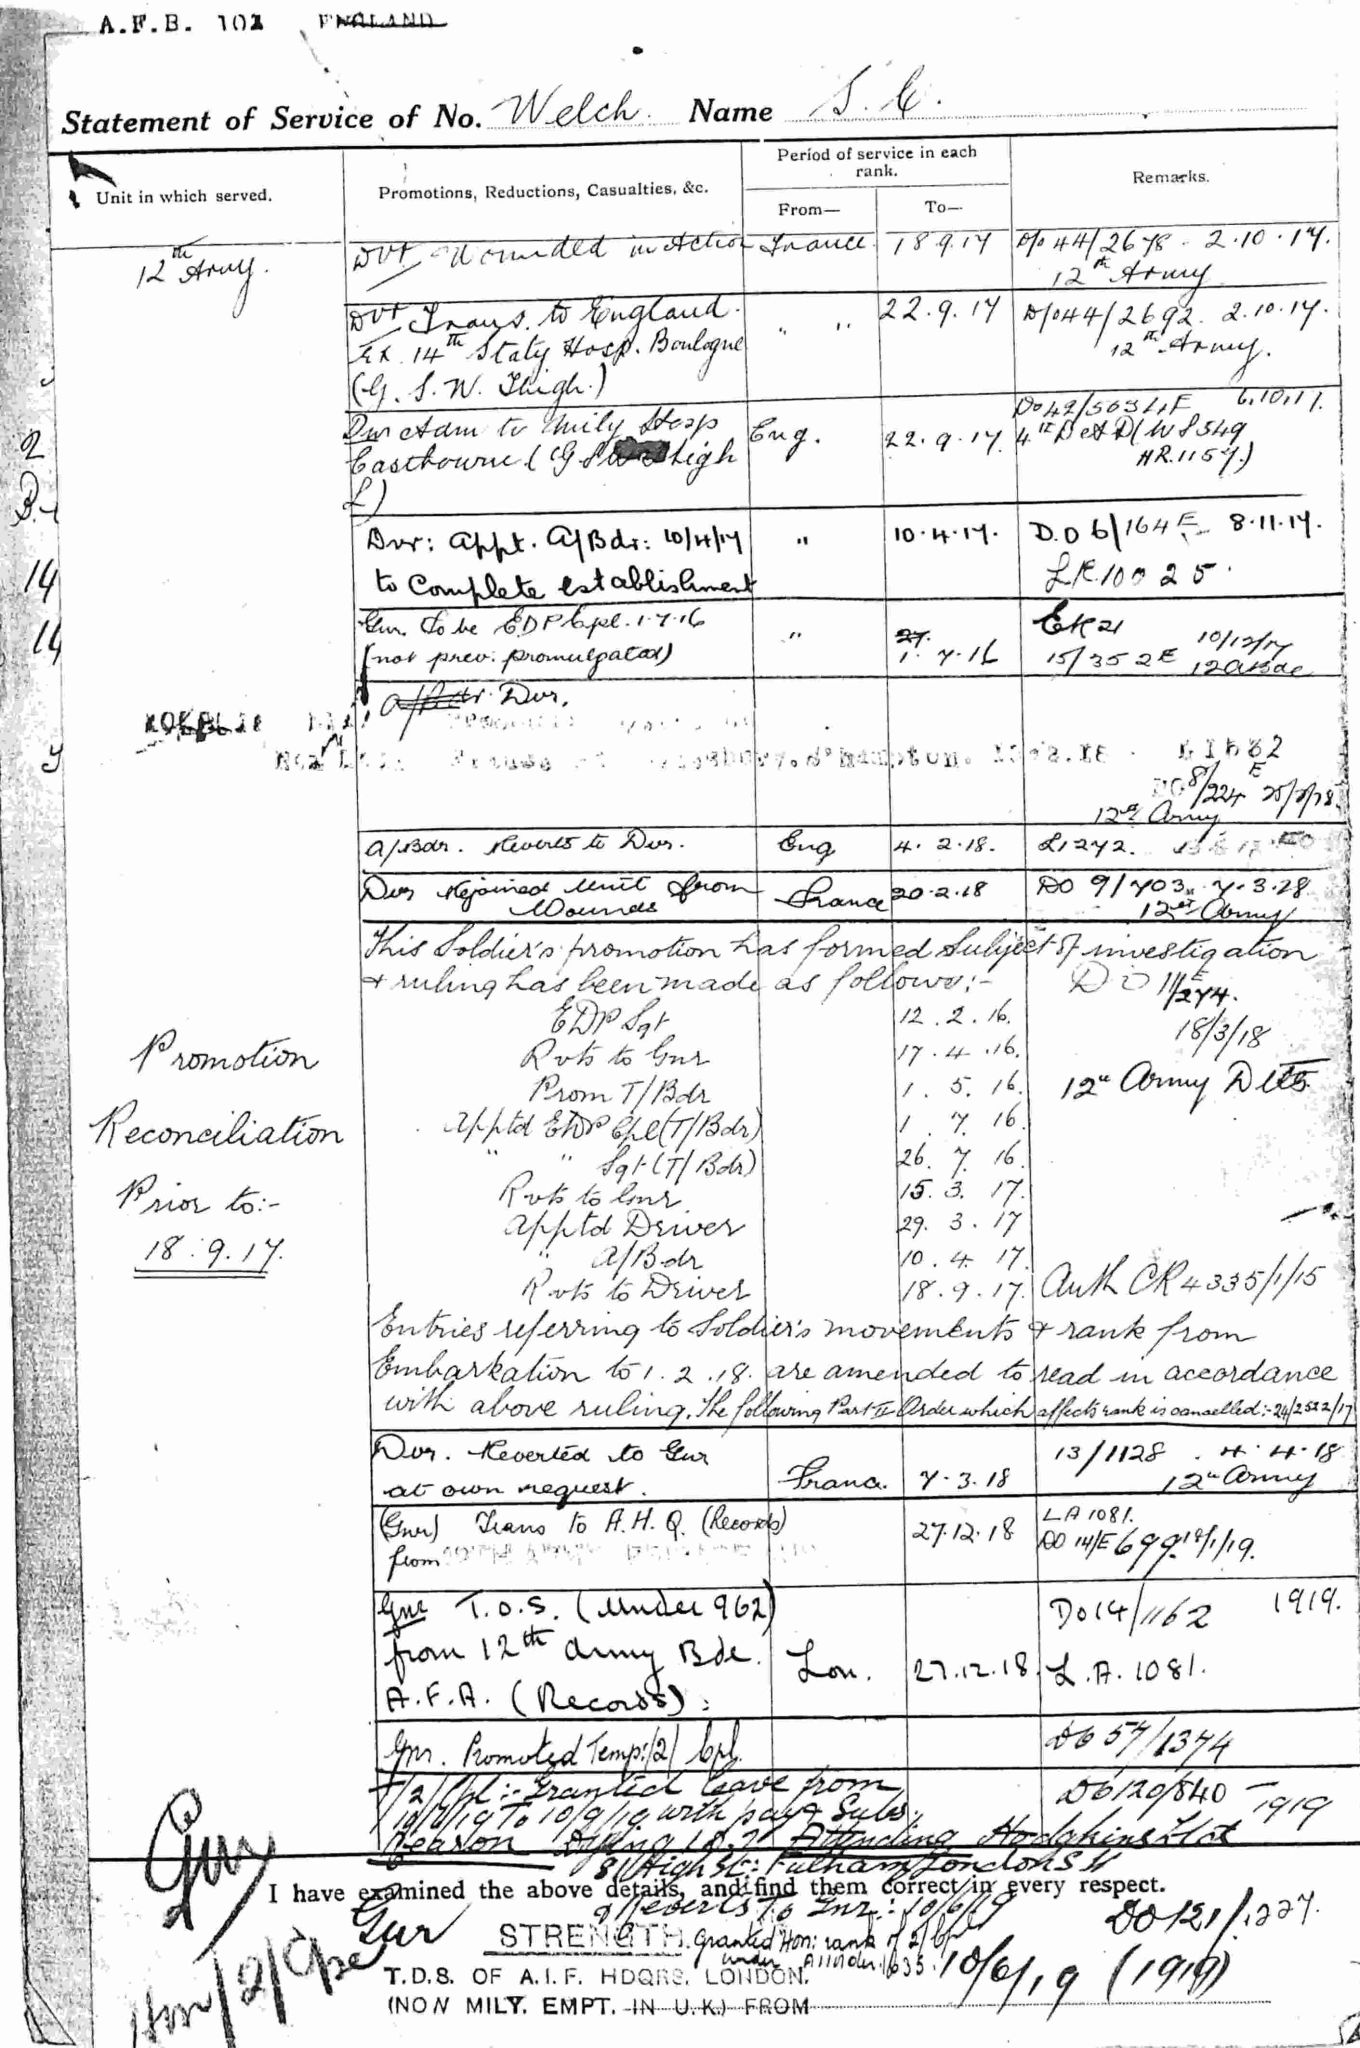 A.F.B. 103 ENGLAND
Statement of Service of No. Welch. Name S. C.
Unit in which served.
Promotions, Reductions, Casualties, &c.
Period of service in each rank.
From—
To—
Remarks.
12th Army.
Dvr Wounded in Action France 18.9.17 D/o 44/2678. 2.10.17.
12th Army
Dvr Trans. to England. " " 22.9.17 D/o 44/2692. 2.10.17.
Ex. 14th Staty Hosp. Boulogne 12th Army.
(G. S. W. Thigh.)
Dvr Adm to Mily Hosp Eng. 22.9.17. Do 42/563 6.10.17.
Eastbourne (G S W Thigh 4th
L) HR.1157.)
Dvr: Appt. A/Bdr: 10/4/17 " 10.4.17. D.O 6/164 E 8.11.17.
to Complete establishment LR.10025.
Gnr. To be EDP Cpl. 1.7.16 " 1.7.16 10/12/17
(not prev. promulgated) 15/352E 12 A Bde
A/Bdr Dvr.
8/224 E
12th Army
A/Bdr. Reverts to Dvr. Eng 4.2.18. L1272.
Dvr Rejoined Unit from France 20.2.18 DO 9/703 7.3.28
Wounds 12th Army
This Soldier's promotion has formed Subject of investigation
& ruling has been made as follows:- D O 11/274. E
EDP Sgt 12.2.16. 18/3/18
Promotion Rvts to Gnr 17.4.16.
Prom T/Bdr 1.5.16. 12th Army Dets
Reconciliation Apptd EDP Cpl (T/Bdr) 1.7.16.
" " Sgt (T/Bdr) 26.7.16.
Prior to:- Rvts to Gnr 15.3.17.
Apptd Driver 29.3.17
18.9.17. " A/Bdr 10.4.17.
Rvts to Driver 18.9.17. Auth CR 4335/1/15
Entries referring to Soldier's movements & rank from
Embarkation to 1.2.18. are amended to read in accordance
with above ruling. The following Part II Order which affects rank is cancelled:- 24/2522/17
Dvr. Reverted to Gnr 13/1128. 4.4.18
at own request. France. 7.3.18 12th Army
(Gnr) Trans to A.H.Q. (Records) 27.12.18 LA 1081.
from DO 14/E 699
Gnr T.O.S. (Under 962) Do 14/1162 1919.
from 12th Army Bde. Lon. 27.12.18. L.A. 1081.
A.F.A. (Records):
Gnr. Promoted Temp:/2/Cpl. DO 57/1374
T/2/Cpl:- Granted leave from DO 120/840 1919
10/7/19 To 10/9/19 with pay & Subs.
Reason Attending Hodgkins
High St: Fulham London SW
I have examined the above details, and find them correct in every respect.
Gnr
Reverts To Gnr.: 10/6/19 DO 121/1227.
Gnr
STRENGTH. Granted Hon: rank of 2/Cpl
under 1635. 10/6/19 (1919)
T.D.S. OF A.I.F. HDQRS. LONDON.
(NON MILY. EMPT. IN U.K.) FROM
Hon/2/Cpl